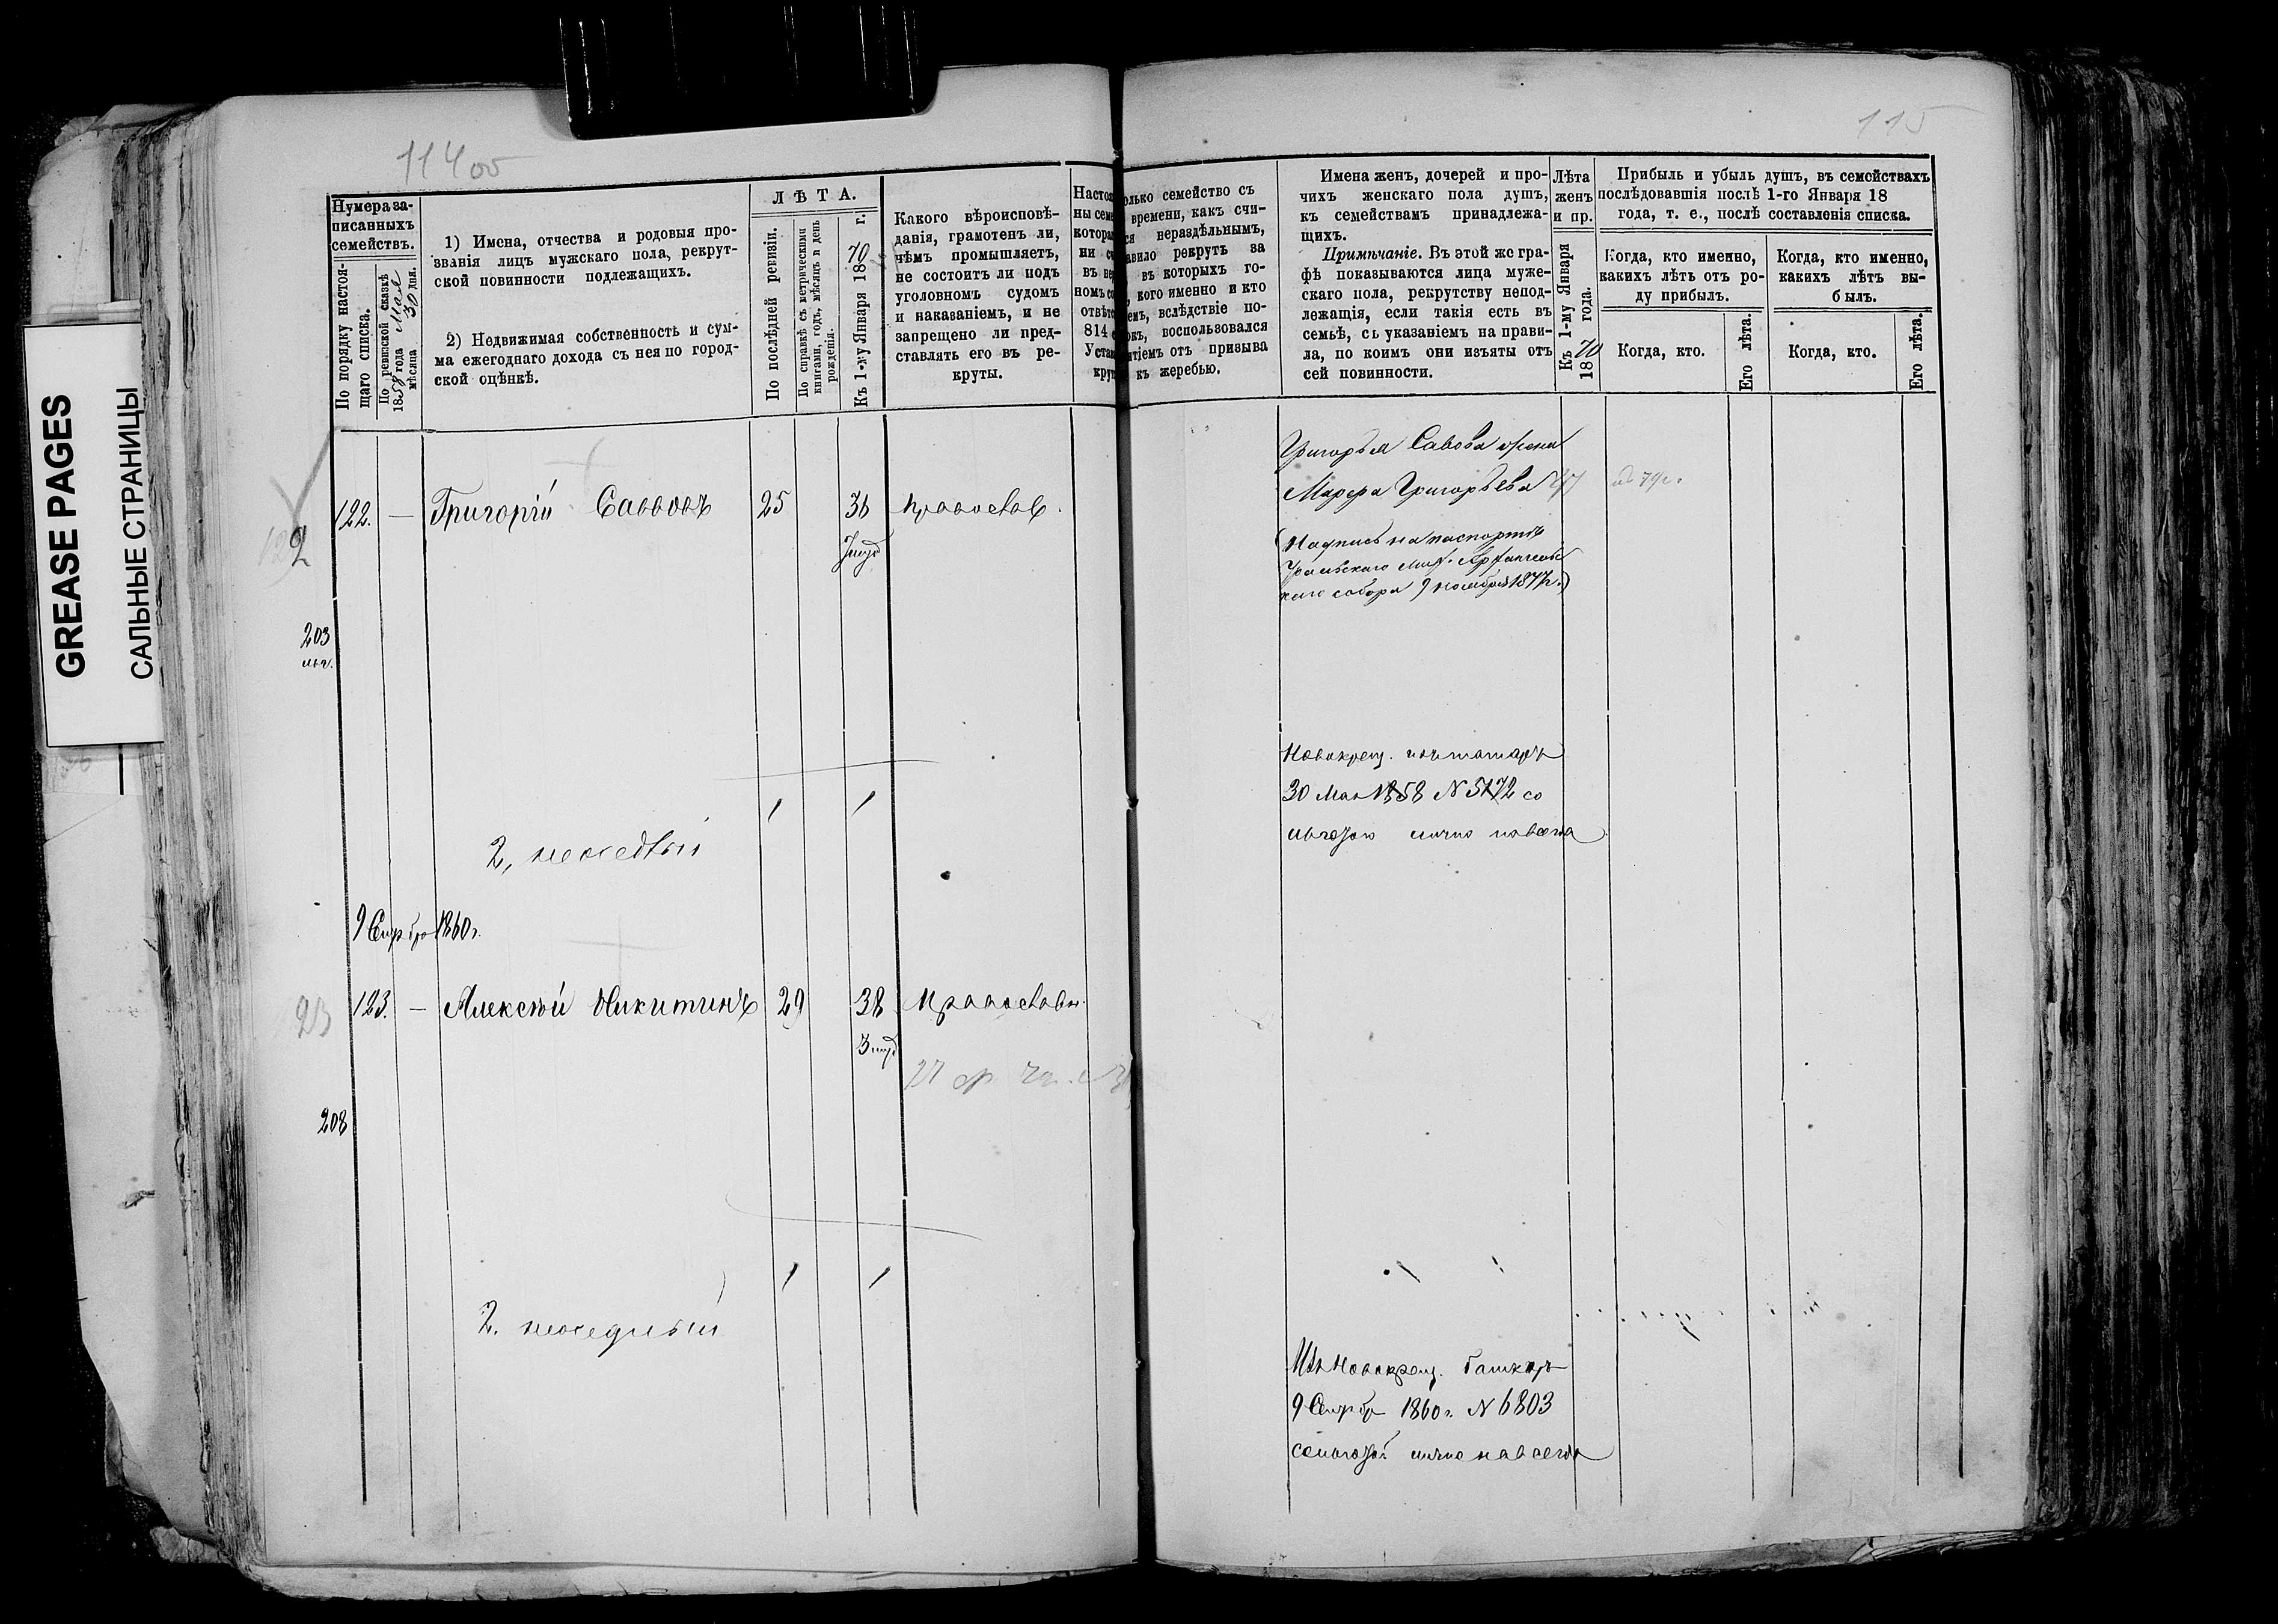 GREASE PAGES
САЛЬНЫЕ СТРАНИЦЫ
114 об
Нумера за-
писанныхъ
семействъ.
По порядку настоя-
щаго списка.
По ревизской сказкѣ
1858 года Мая
мѣсяца 30 дня.
1) Имена, отчества и родовыя про-
званія лицъ мужскаго пола, рекрут-
ской повинности подлежащихъ.
2) Недвижимая собственность и сум-
ма ежегоднаго дохода съ нея по город-
ской оцѣнкѣ.
ЛѢТА.
По послѣдней ревизіи.
По справкѣ съ метрическими
книгами, годъ, мѣсяцъ и день
рожденія.
Къ 1-му Января 1870 г.
Какого вѣроисповѣ-
данія, грамотенъ ли,
чѣмъ промышляетъ,
не состоитъ ли подъ
уголовномъ судомъ
и наказаніемъ, и не
запрещено ли пред-
ставлять его въ ре-
круты.
122. — Григорій Саввовъ 25 36 Православ.
2
203
1 1
2, неосѣдлый
9 Сентбр 1860 г.
123. — Алексѣй Никитинъ 29 38 Православн.
23
208
1 1
2. неосѣдлый
115
олько семейство съ
времени, какъ счи-
ся нераздѣльнымъ,
авило рекрутъ за
въ которыхъ го-
кого именно и кто
емъ, вслѣдствіе по-
окъ, воспользовался
ятіемъ отъ призыва
къ жеребью.
Имена женъ, дочерей и про-
чихъ женскаго пола душъ,
къ семействамъ принадлежа-
щихъ.
Примѣчаніе. Въ этой же гра-
фѣ показываются лица муже-
скаго пола, рекрутству непод-
лежащія, если такія есть въ
семьѣ, съ указаніемъ на прави-
ла, по коимъ они изъяты отъ
сей повинности.
Лѣта
женъ
и пр.
Къ 1-му Января
1870 года.
Прибыль и убыль душъ, въ семействахъ
послѣдовавшія послѣ 1-го Января 18
года, т. е., послѣ составленія списка.
Когда, кто именно,
какихъ лѣтъ отъ ро-
ду прибылъ.
Когда, кто.
Его лѣта.
Когда, кто именно,
какихъ лѣтъ вы-
былъ.
Когда, кто.
Его лѣта.
Григорья Савова жена
Марфа Григорьева
(Надпись на паспортѣ
Уральскаго Мих. Архангельс
каго собора 9 ноября 1877 г.)
Новокрещ. изъ татаръ
30 Мая 1858 N 5172 со
льготою лично навсегда
Изъ Новокрещ. башкиръ
9 Сентбр 1860 г. N 6803
со льготой лично навсегда